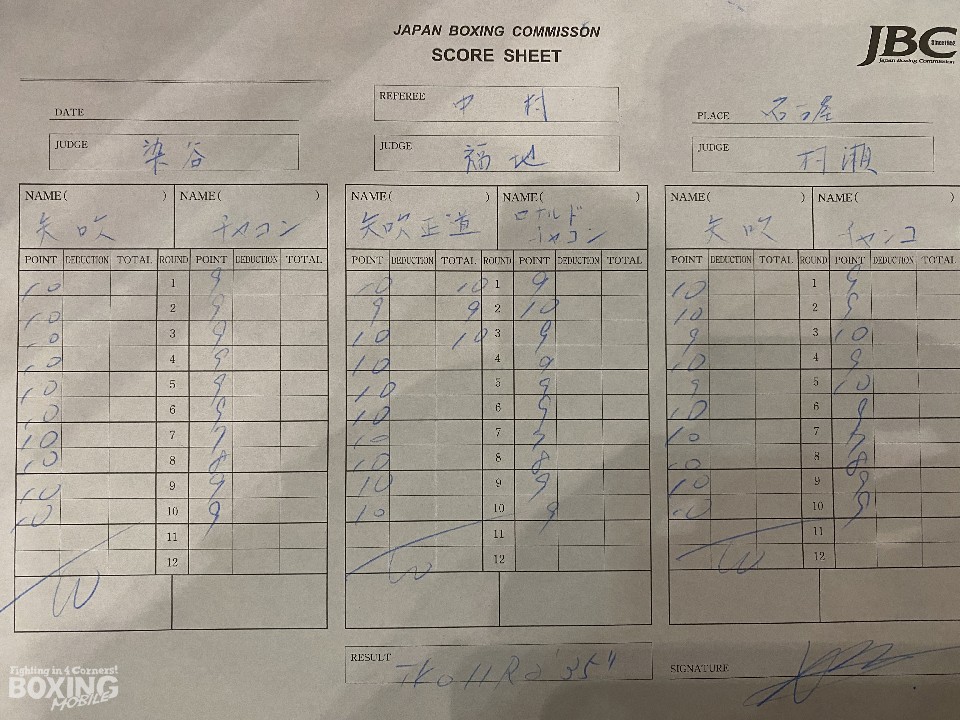 JAPAN BOXING COMMISSÓN
SCORE SHEET
JBC
Since1952
Japan Boxing Commission
DATE
REFEREE 中村
PLACE 名古屋
JUDGE 染谷
JUDGE 福地
JUDGE 村瀬
NAME( ) NAME( )
矢吹 チャコン
POINT DEDUCTION TOTAL ROUND POINT DEDUCTION TOTAL
10 1 9
10 2 9
10 3 9
10 4 9
10 5 9
10 6 9
10 7 7
10 8 8
10 9 9
10 10 9
11
12
W
NAME( ) NAME( )
矢吹正道 ロナルド
チャコン
POINT DEDUCTION TOTAL ROUND POINT DEDUCTION TOTAL
10 10 1 9
9 9 2 10
10 10 3 9
10 4 9
10 5 9
10 6 9
10 7 7
10 8 8
10 9 9
10 10 9
11
12
W
NAME( ) NAME( )
矢吹 チャンコ
POINT DEDUCTION TOTAL ROUND POINT DEDUCTION TOTAL
10 1 9
10 2 9
9 3 10
10 4 9
9 5 10
10 6 9
10 7 7
10 8 8
10 9 9
10 10 9
11
12
W
RESULT TKO 11R 2'35"
SIGNATURE
Fighting in 4 Corners!
BOXING
MOBILE